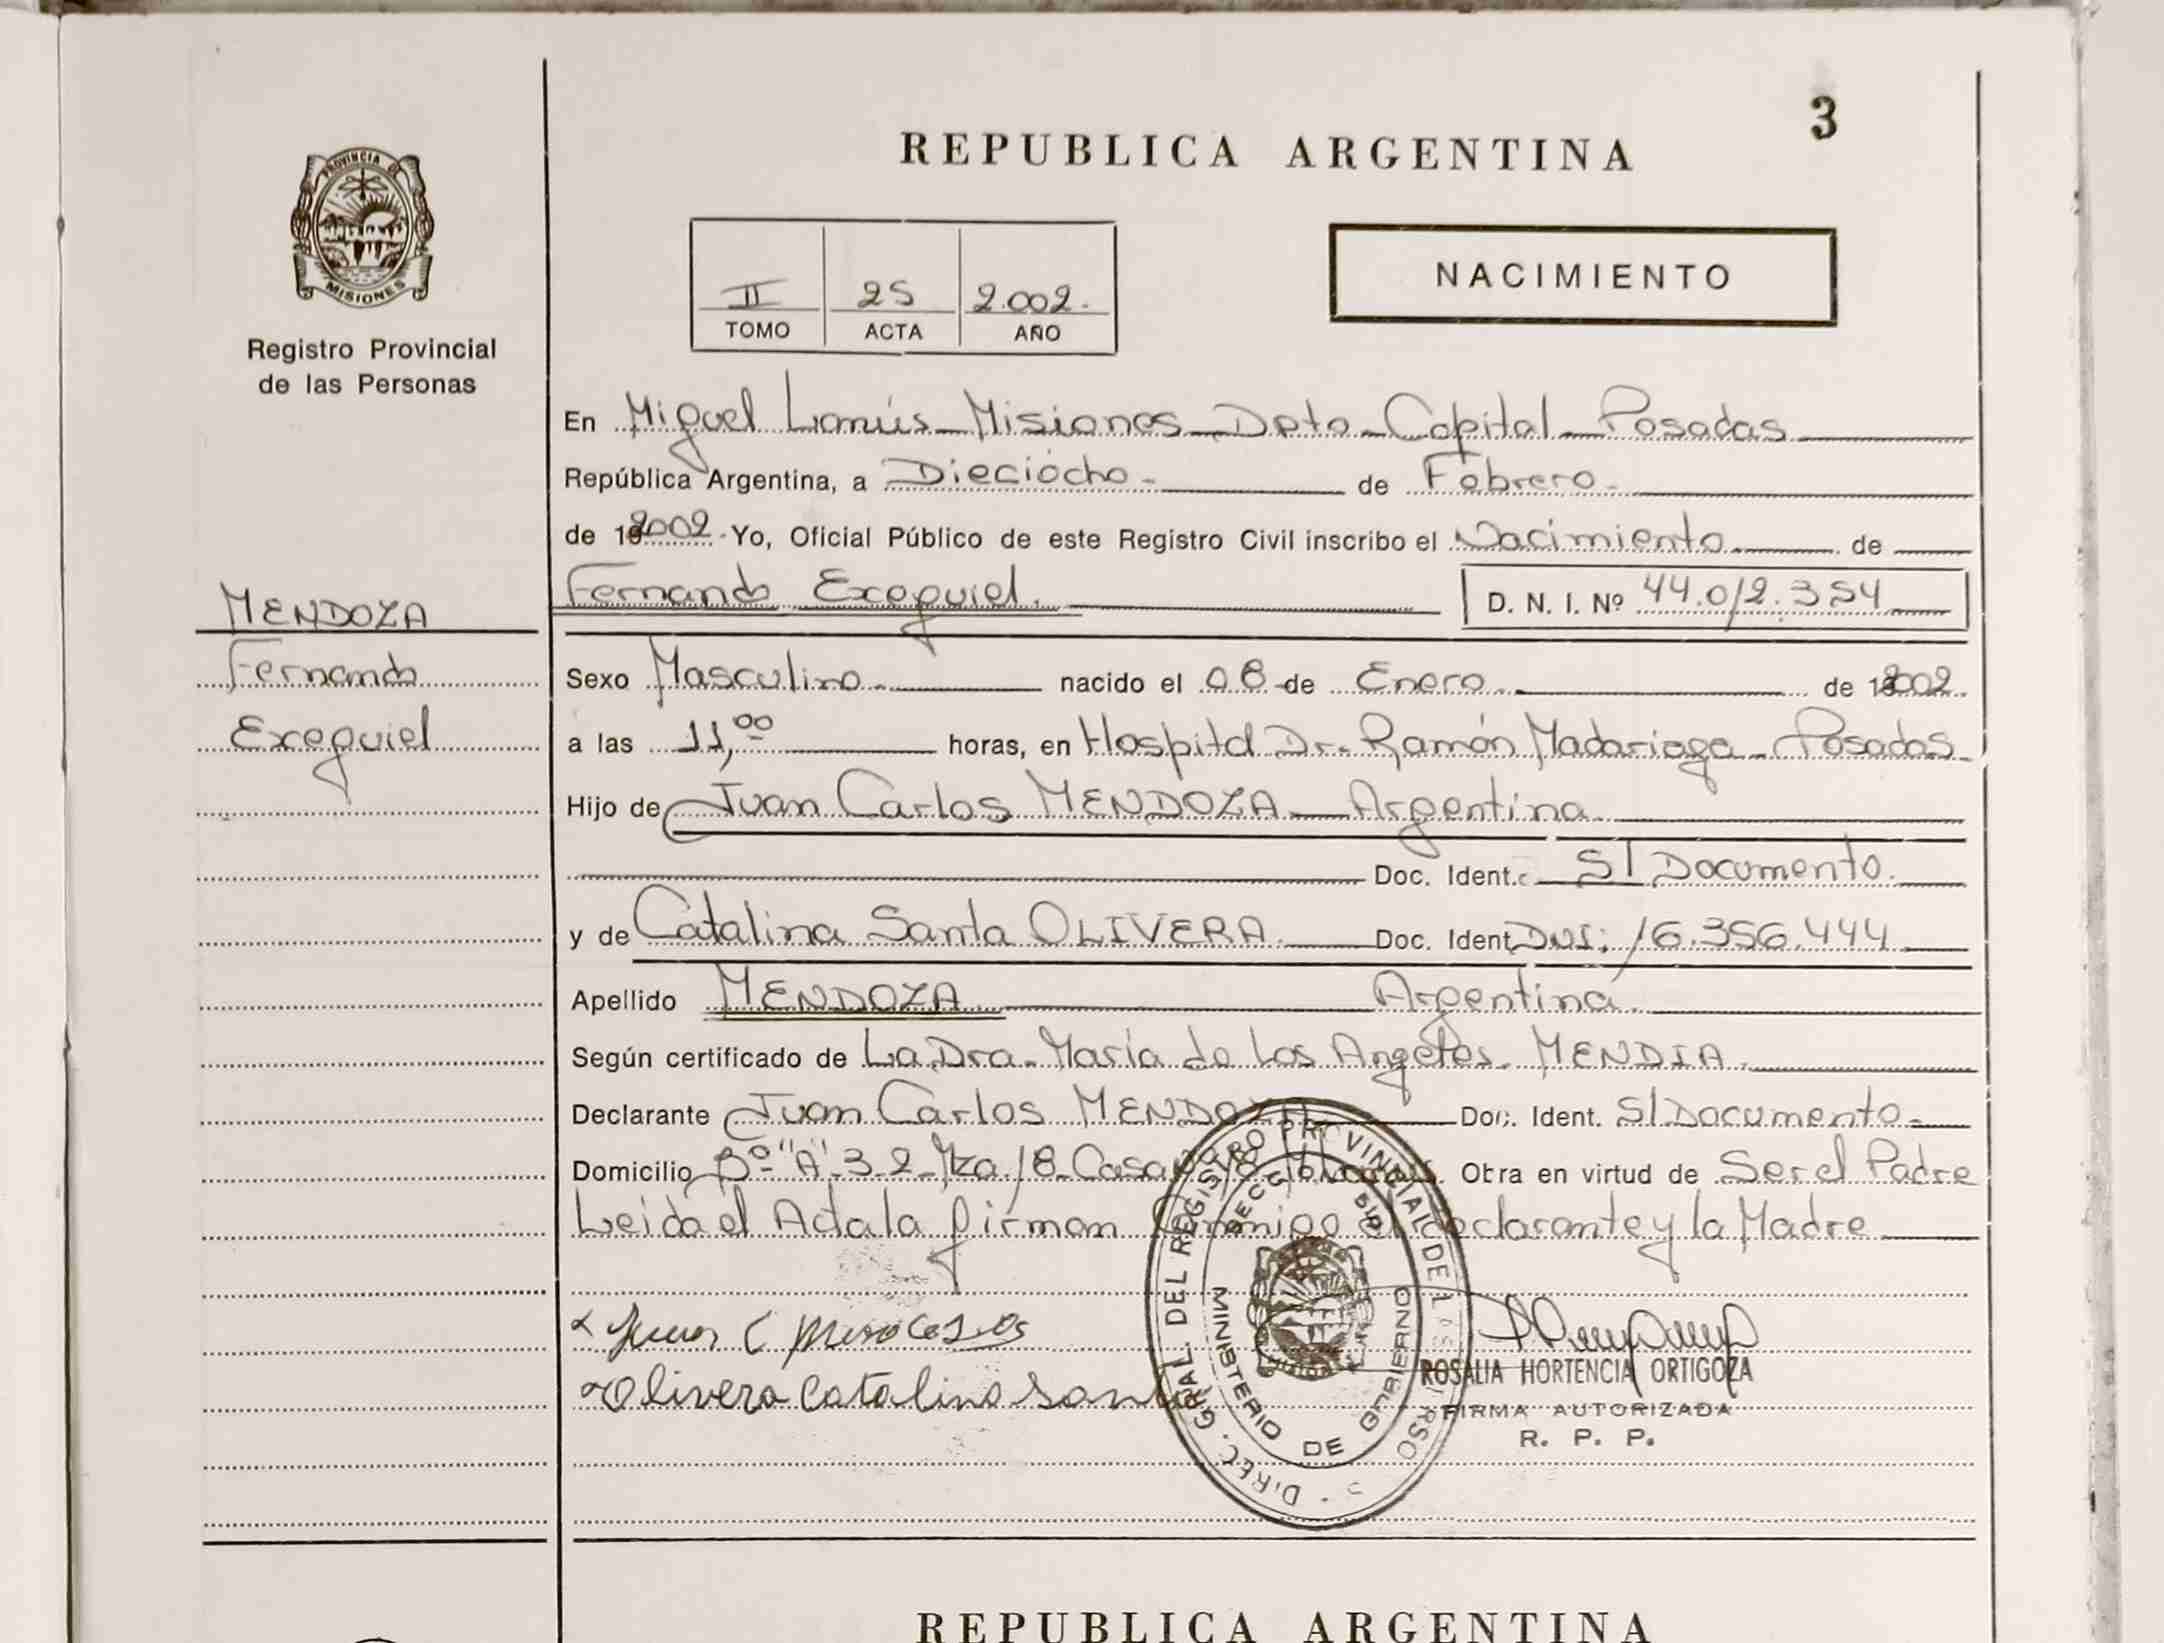 3
REPUBLICA ARGENTINA
PROVINCIA DE
MISIONES
Registro Provincial
de las Personas
II 25 2.002.
TOMO ACTA AÑO
NACIMIENTO
En Miguel Lanús - Misiones - Dpto - Capital - Posadas
República Argentina, a Dieciocho - de Febrero.
de 19 2002. Yo, Oficial Público de este Registro Civil inscribo el Nacimiento de
MENDOZA
Fernando Exequiel. D. N. I. Nº 44.012.354
Fernando
Sexo Masculino. nacido el 08 de Enero. de 19 2002.
Exequiel
a las 11,00 horas, en Hospital Dr. Ramón Madariaga - Posadas.
Hijo de Juan Carlos MENDOZA - Argentina.
Doc. Ident. S/ Documento.
y de Catalina Santa OLIVERA. Doc. Ident. DNI: 16.356.444
Apellido MENDOZA Argentina.
Según certificado de La Dra. María de Los Angeles MENDIA.
Declarante Juan Carlos MENDOZA Doc. Ident. S/ Documento.
Domicilio Bº "A" 3-2 Mza. 18 Casa Obra en virtud de Ser el Padre
Leida el Acta la firman Conmigo el declarante y la Madre
Juan C
Olivera Catalina Santa
DIREC. GRAL. DEL REGISTRO PROVINCIAL DE
MINISTERIO DE GOBIERNO
ROSALIA HORTENCIA ORTIGOZA
FIRMA AUTORIZADA
R. P. P.
REPUBLICA ARGENTINA